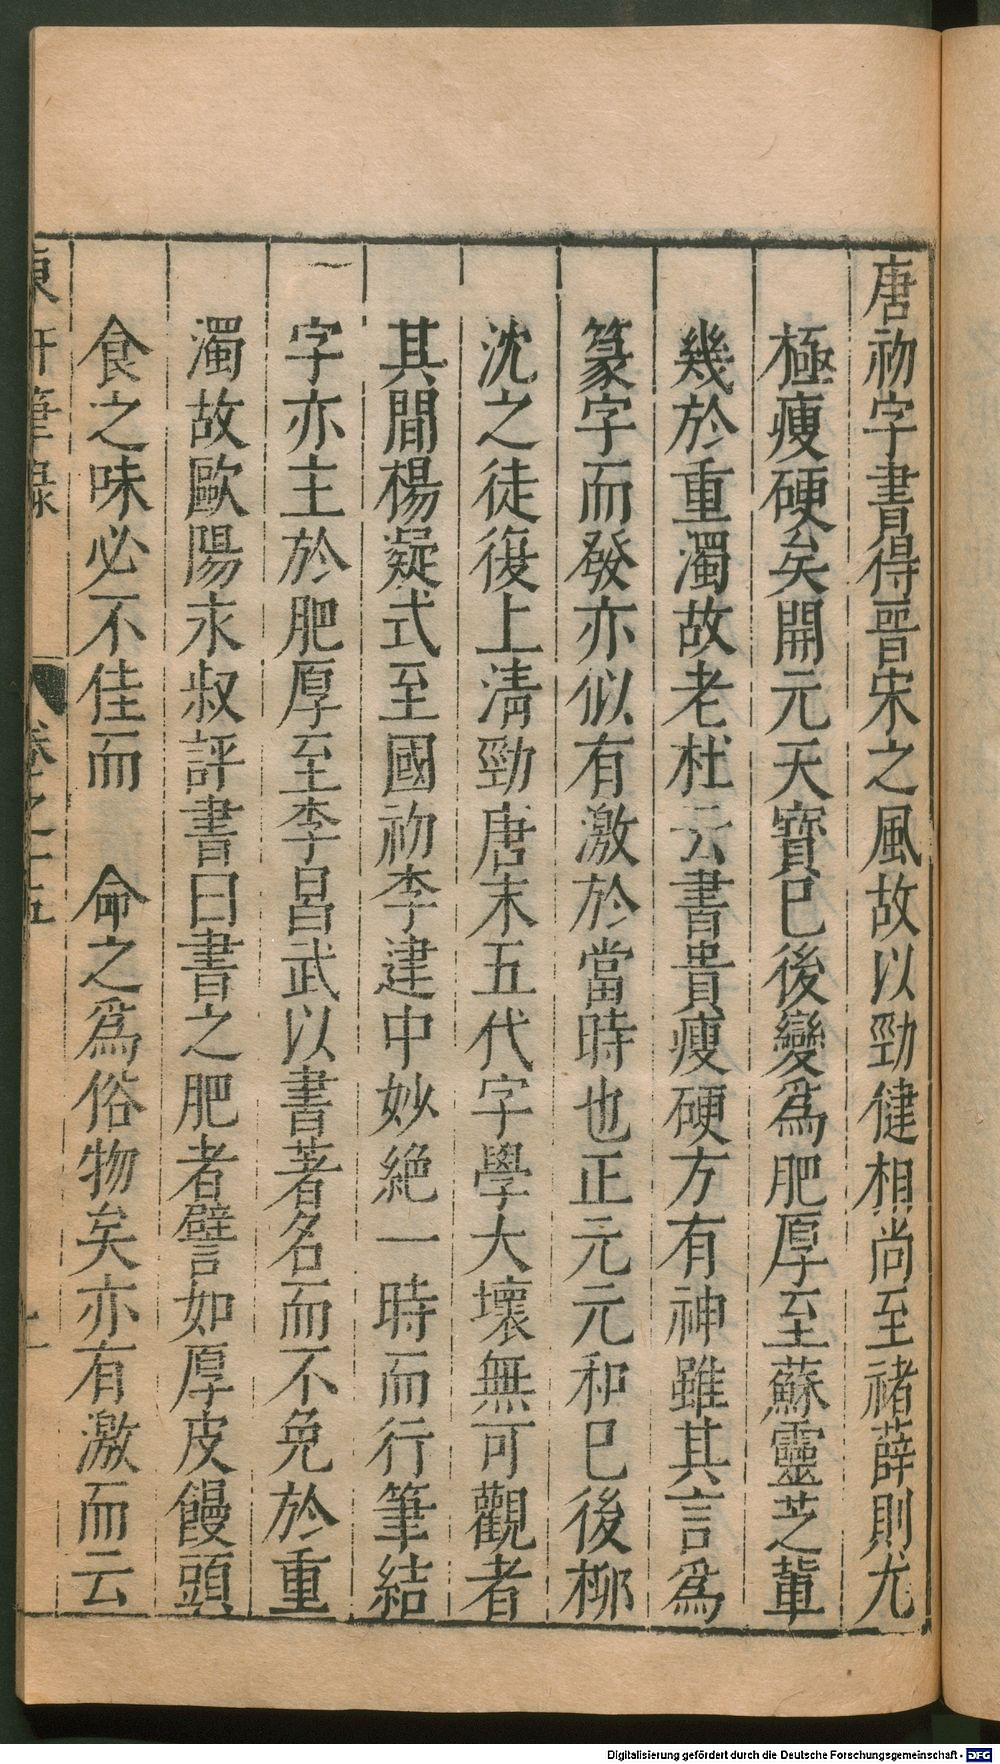 唐初字書得晉宋之風故以勁健相尚至褚薛則尤
極瘦硬矣開元天寶已後變爲肥厚至蘇靈芝軰
幾於重濁故老杜云書貴瘦硬方有神雖其言爲
篆字而發亦似有激於當時也正元元和已後柳
沈之徒復上清勁唐末五代字學大壞無可觀者
其間楊凝式至國初李建中妙絶一時而行筆結
字亦主於肥厚至李昌武以書著名而不免於重
濁故歐陽永叔評書曰書之肥者譬如厚皮饅頭
食之味必不佳而 命之爲俗物矣亦有激而云
東軒筆錄 卷之十五
Digitalisierung gefördert durch die Deutsche Forschungsgemeinschaft - DFG